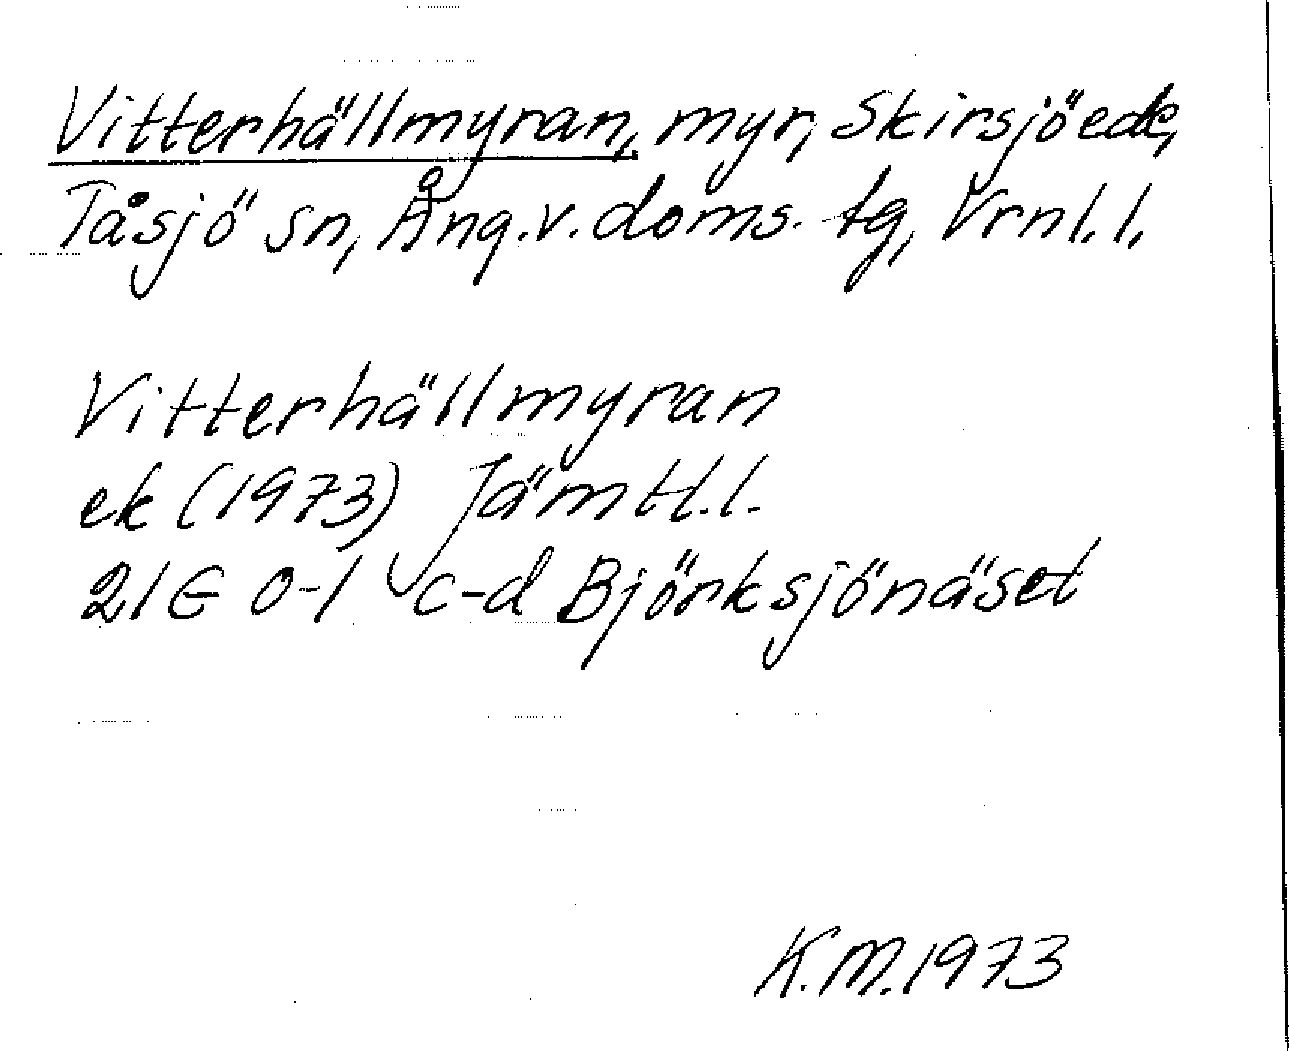 Vitterhällmyran, myr, Skirsjöede,
Tåsjö sn, Ång.v.doms.tg, Vrnl.l.
Vitterhällmyran
ek (1973) Jämtl.l.
21E 0-1 c-d Björksjönäset
K.M.1973